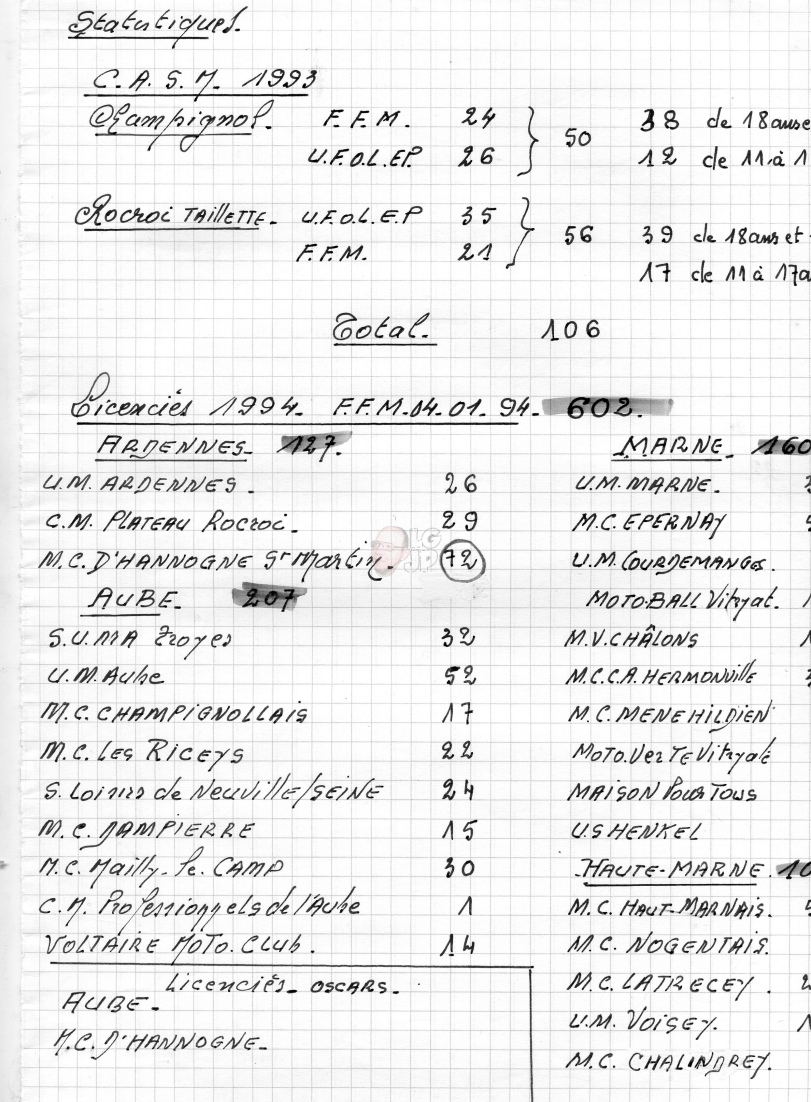 Statistiques.
C. A. S. M. 1993
Champignol. F. F. M. 24 50 38 de 18 ans e
U.F.O.L.EP. 26 12 de 11 à 1
Rocroi TAILLETTE. U.F.O.L.E.P 35 56 39 de 18 ans et
F.F.M. 21 17 de 11 à 17 a
Total. 106
Licenciés 1994. F.F.M. 04. 01. 94. 602.
ARDENNES. 127.
U.M. ARDENNES. 26
C.M. PLATEAU Rocroi. 29
M.C. D'HANNOGNE St Martin. 72
AUBE. 207
S.U.MA Troyes 32
U.M. Aube 52
M.C. CHAMPIGNOLLAIS 17
M.C. LES RICEYS 22
S. Loisirs de Neuville/SEINE 24
M.C. DAMPIERRE 15
M.C. Mailly-le. CAMP 30
C.M. Professionnels de l'Aube 1
VOLTAIRE MOTO. CLUB. 14
Licenciés. OSCARS.
AUBE.
M.C. D'HANNOGNE.
MARNE. 160
U.M. MARNE.
M.C. EPERNAY
U.M. COURDEMANGES.
MOTO-BALL Vitryat. 1
M.V. CHÂLONS 1
M.C.C.A. HERMONVILLE
M.C. MENEHILDIEN
MOTO. VERTE Vitryate
MAISON Pour Tous
U.S HENKEL
HAUTE-MARNE. 10
M.C. HAUT-MARNAIS.
M.C. NOGENTAIS.
M.C. LATRECEY. 2
U.M. VOISEY. 1
M.C. CHALINDREY.
LG
JP